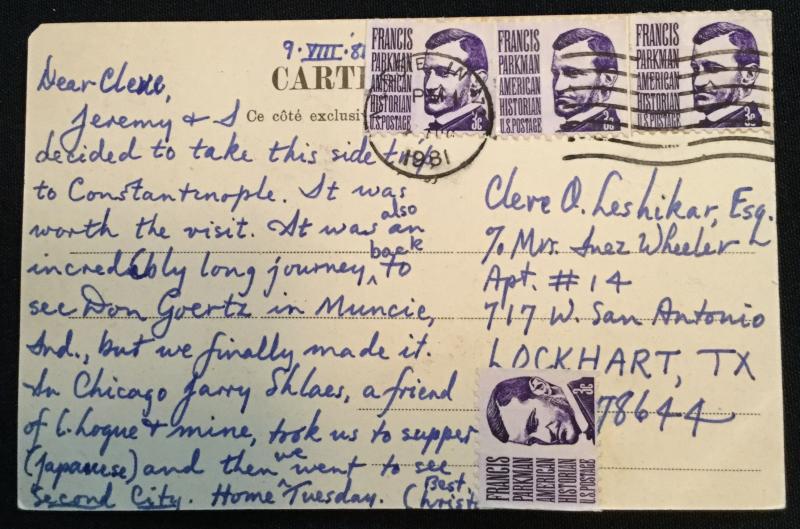 9·VIII·81
CARTE
Ce côté exclusiv
FRANCIS
PARKMAN
AMERICAN
HISTORIAN
U.S.POSTAGE
3c
FRANCIS
PARKMAN
AMERICAN
HISTORIAN
U.S.POSTAGE
3c
FRANCIS
PARKMAN
AMERICAN
HISTORIAN
U.S.POSTAGE
3c
PM
1981
Dear Clere,
Jeremy & I
decided to take this side trip
to Constantinople. It was
worth the visit. It was also an
incredibly long journey, back to
see Don Goertz in Muncie,
Ind., but we finally made it.
In Chicago Jarry Shlaes, a friend
of L. Logue & mine, took us to supper
(Japanese) and then we went to see
Second City. Home Tuesday. (Best
Christ
Clere O. Leshikar, Esq.
% Mrs. Inez Wheeler
Apt. #14
717 W. San Antonio
LOCKHART, TX
78644
FRANCIS
PARKMAN
AMERICAN
HISTORIAN
U.S.POSTAGE
3c